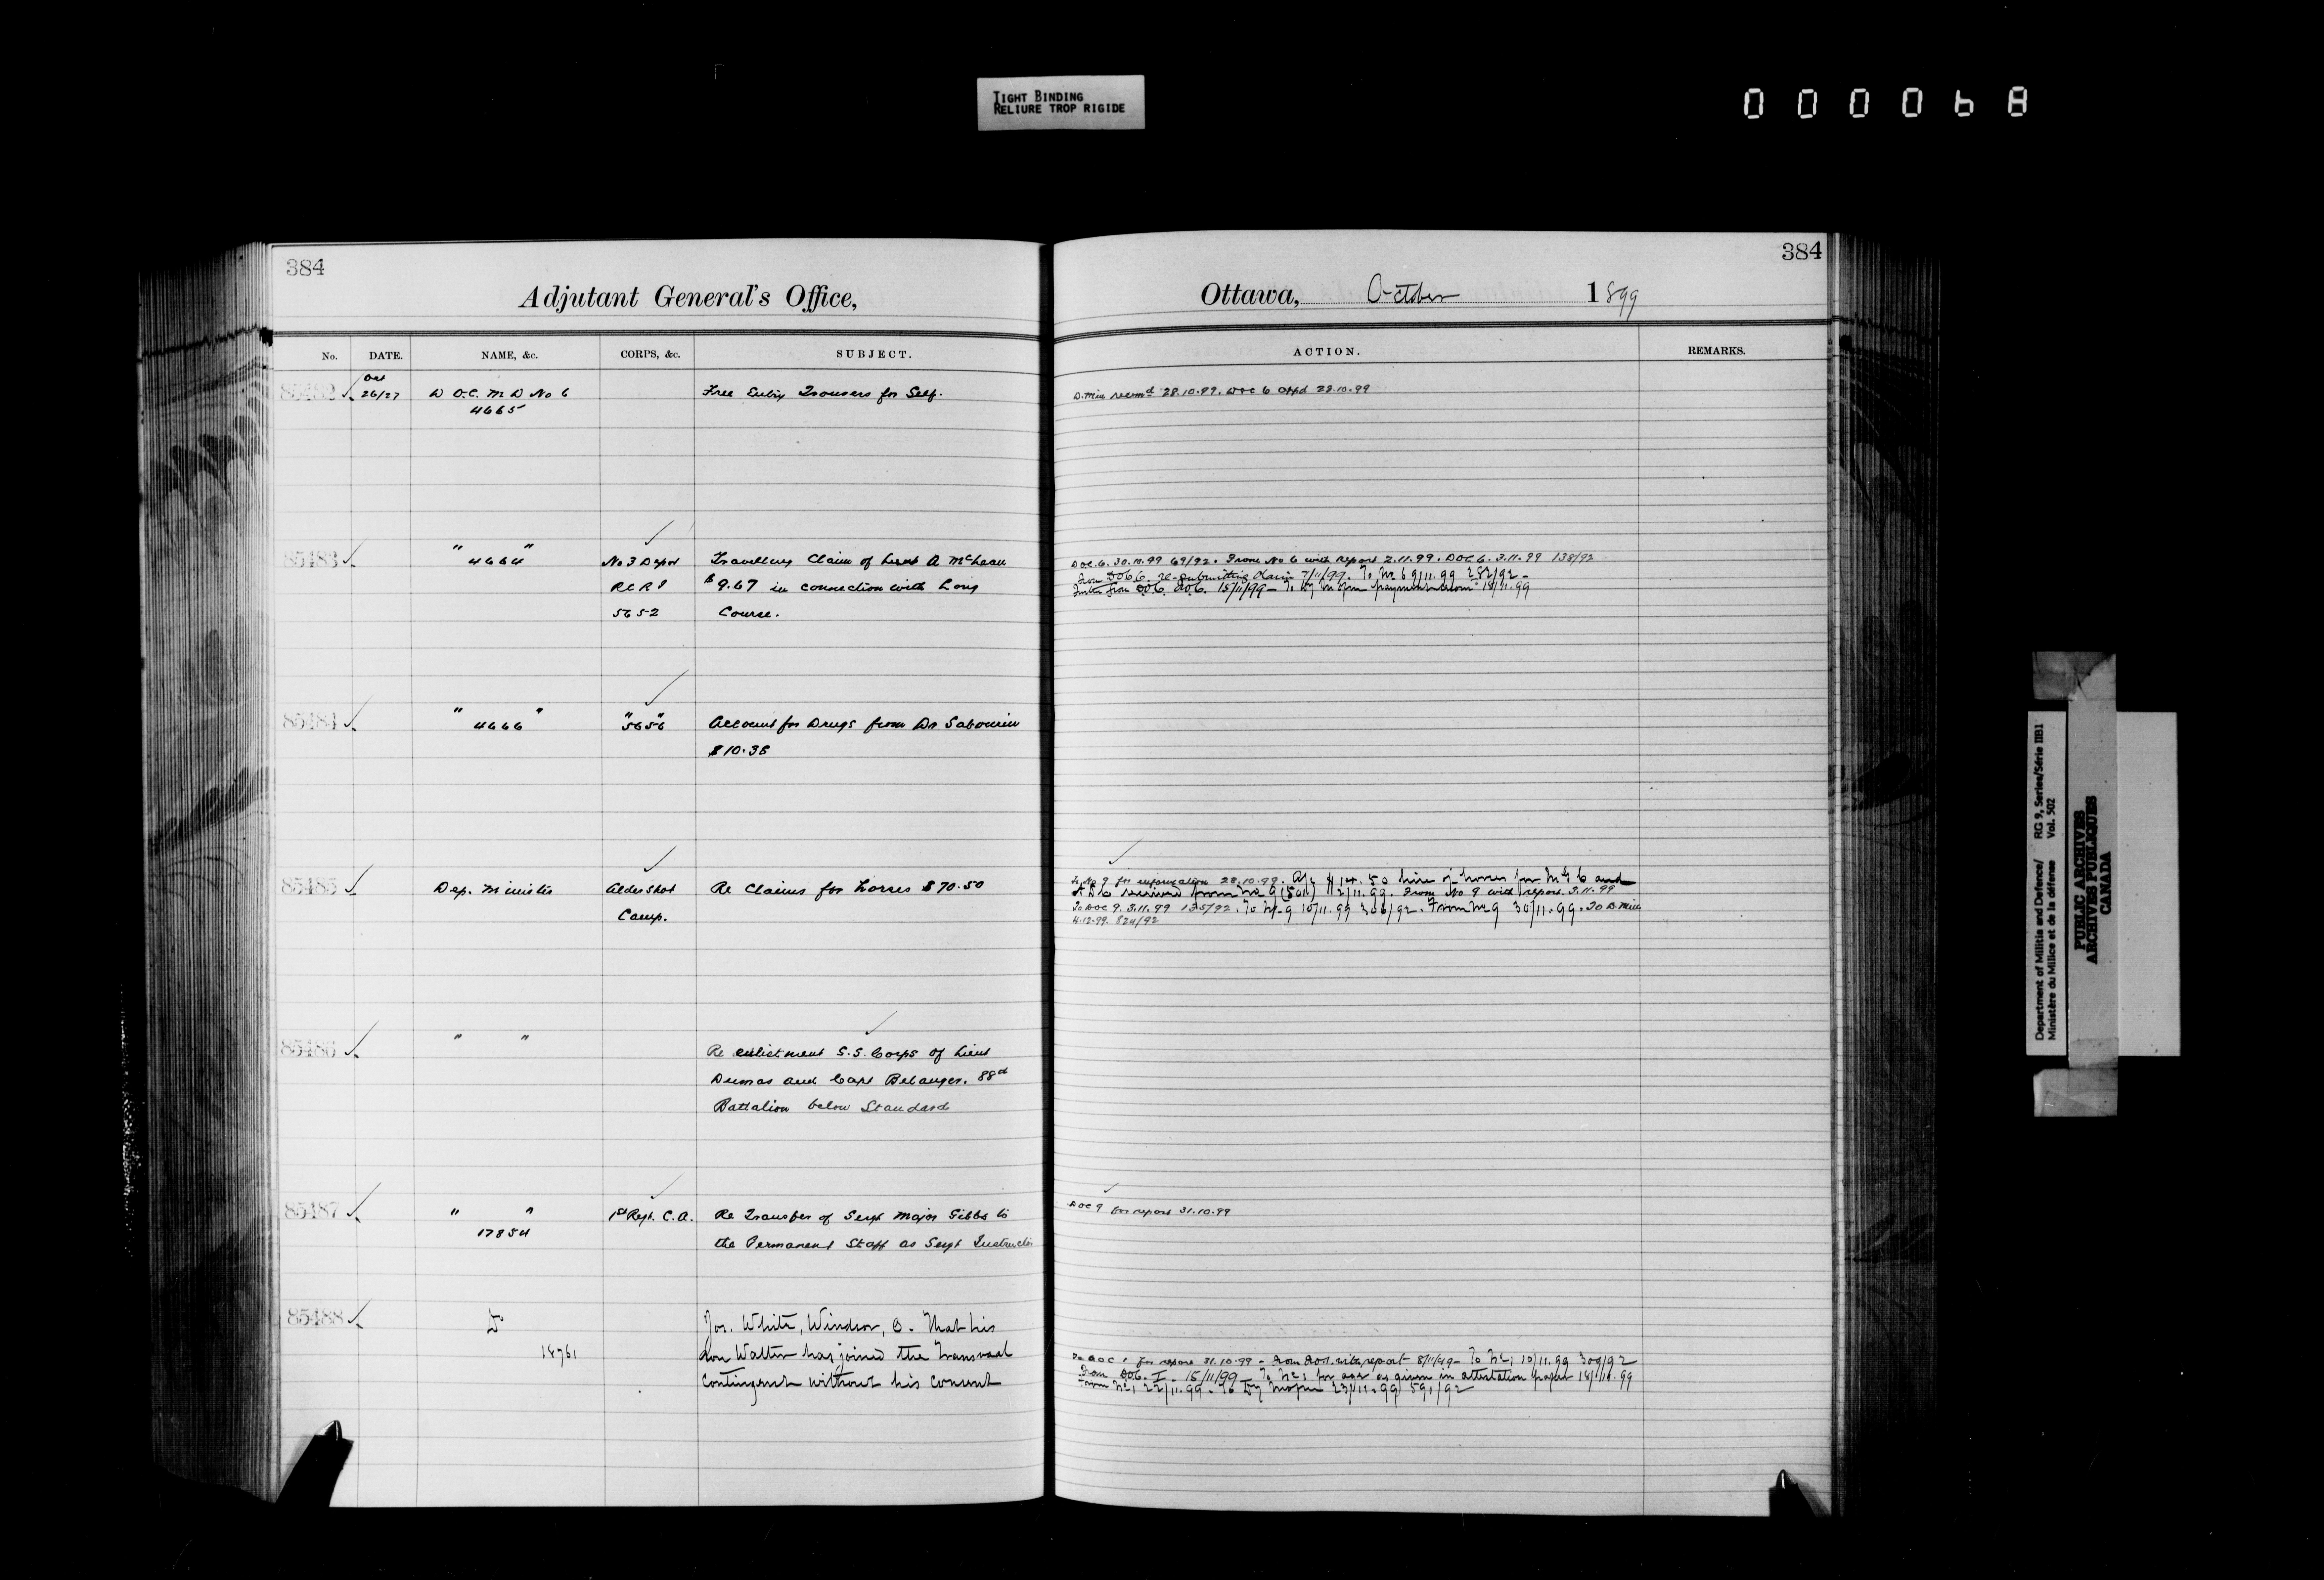 TIGHT BINDING
RELIURE TROP RIGIDE
000068
384
Adjutant General's Office,
No. DATE. NAME, &c. CORPS, &c. SUBJECT.
85482 Oct 26/27 D O.C. M D No 6 Free Trousers for Self.
4665
85483 " 4664 " No 3 Depot Travelling Claim of Lieut A McLean
RCRI $9.67 in connection with Long
5652 Course.
85484 " 4666 " "5656" Account for Drugs from Dr Sabourin
$10.38
85485 Dep. Minister Aldershot Re Claims for horses $70.50
Camp.
85486 " " Re enlistment S.S. Corps of Lieut
Dumas and Capt Belanger. 88d
Battalion below Standard
85487 " " 1st Regt. C.A. Re Transfer of Sergt Major Gibbs to
17854 the Permanent Staff as Sergt Instructor
85488 Do Jos. White, Windsor, O. That his
18761 son Walter has joined the Transvaal
Contingent without his consent
384
Ottawa, October 1899
ACTION. REMARKS.
D. Min recomd 28.10.99. DOC 6 appd 28.10.99
DOC. 6. 30.10.99 69/92. From No 6 with report 2.11.99. DOC 6. 3.11.99 138/92
From DOC 6. re-submitting claim 7/11/99. To No 6 9/11.99 282/92 -
15/11/99 - To
To No 9 for information 28.10.99. A/c $14.50 hire of horses for and
received from No 9 (501) 2/11.99. From No 9 with report 3.11.99
To DOC 9. 3.11.99 135/92. To No 9 10/11.99 306/92. From No 9 30/11.99. To D. Min
4.12.99. 824/92
DOC 9 for report 31.10.99
To DOC 1 for report 31.10.99 - From with report 8/11/99 - To No 1 10/11.99 309/92
From DOC. I - 15/11/99 - To No 1 for age as given in attestation paper 18/11.99
From No 1 22/11.99. To 23/11.99 591/92
Department of Militia and Defence/ RG 9, Series/Série IIB1
Ministère du Milice et de la défense Vol. 502
PUBLIC ARCHIVES
ARCHIVES PUBLIQUES
CANADA